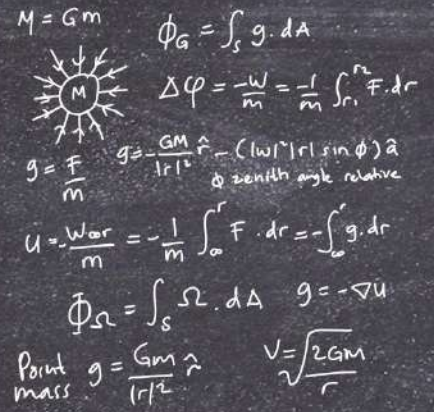 M = Gm
ϕ_G = ∫_S g · dA
M
Δφ = -W/m = -1/m ∫_{r1}^{r2} F · dr
g = F/m
g = -GM/|r|² r̂ - (|ω|²|r| sin ϕ) â
ϕ zenith angle relative
u = -W∞r/m = -1/m ∫_∞^r F · dr = -∫_∞^r g · dr
Φ_Ω = ∫_S Ω · dA
g = -∇u
Point mass g = Gm/|r|² r̂
V = √(2Gm/r)